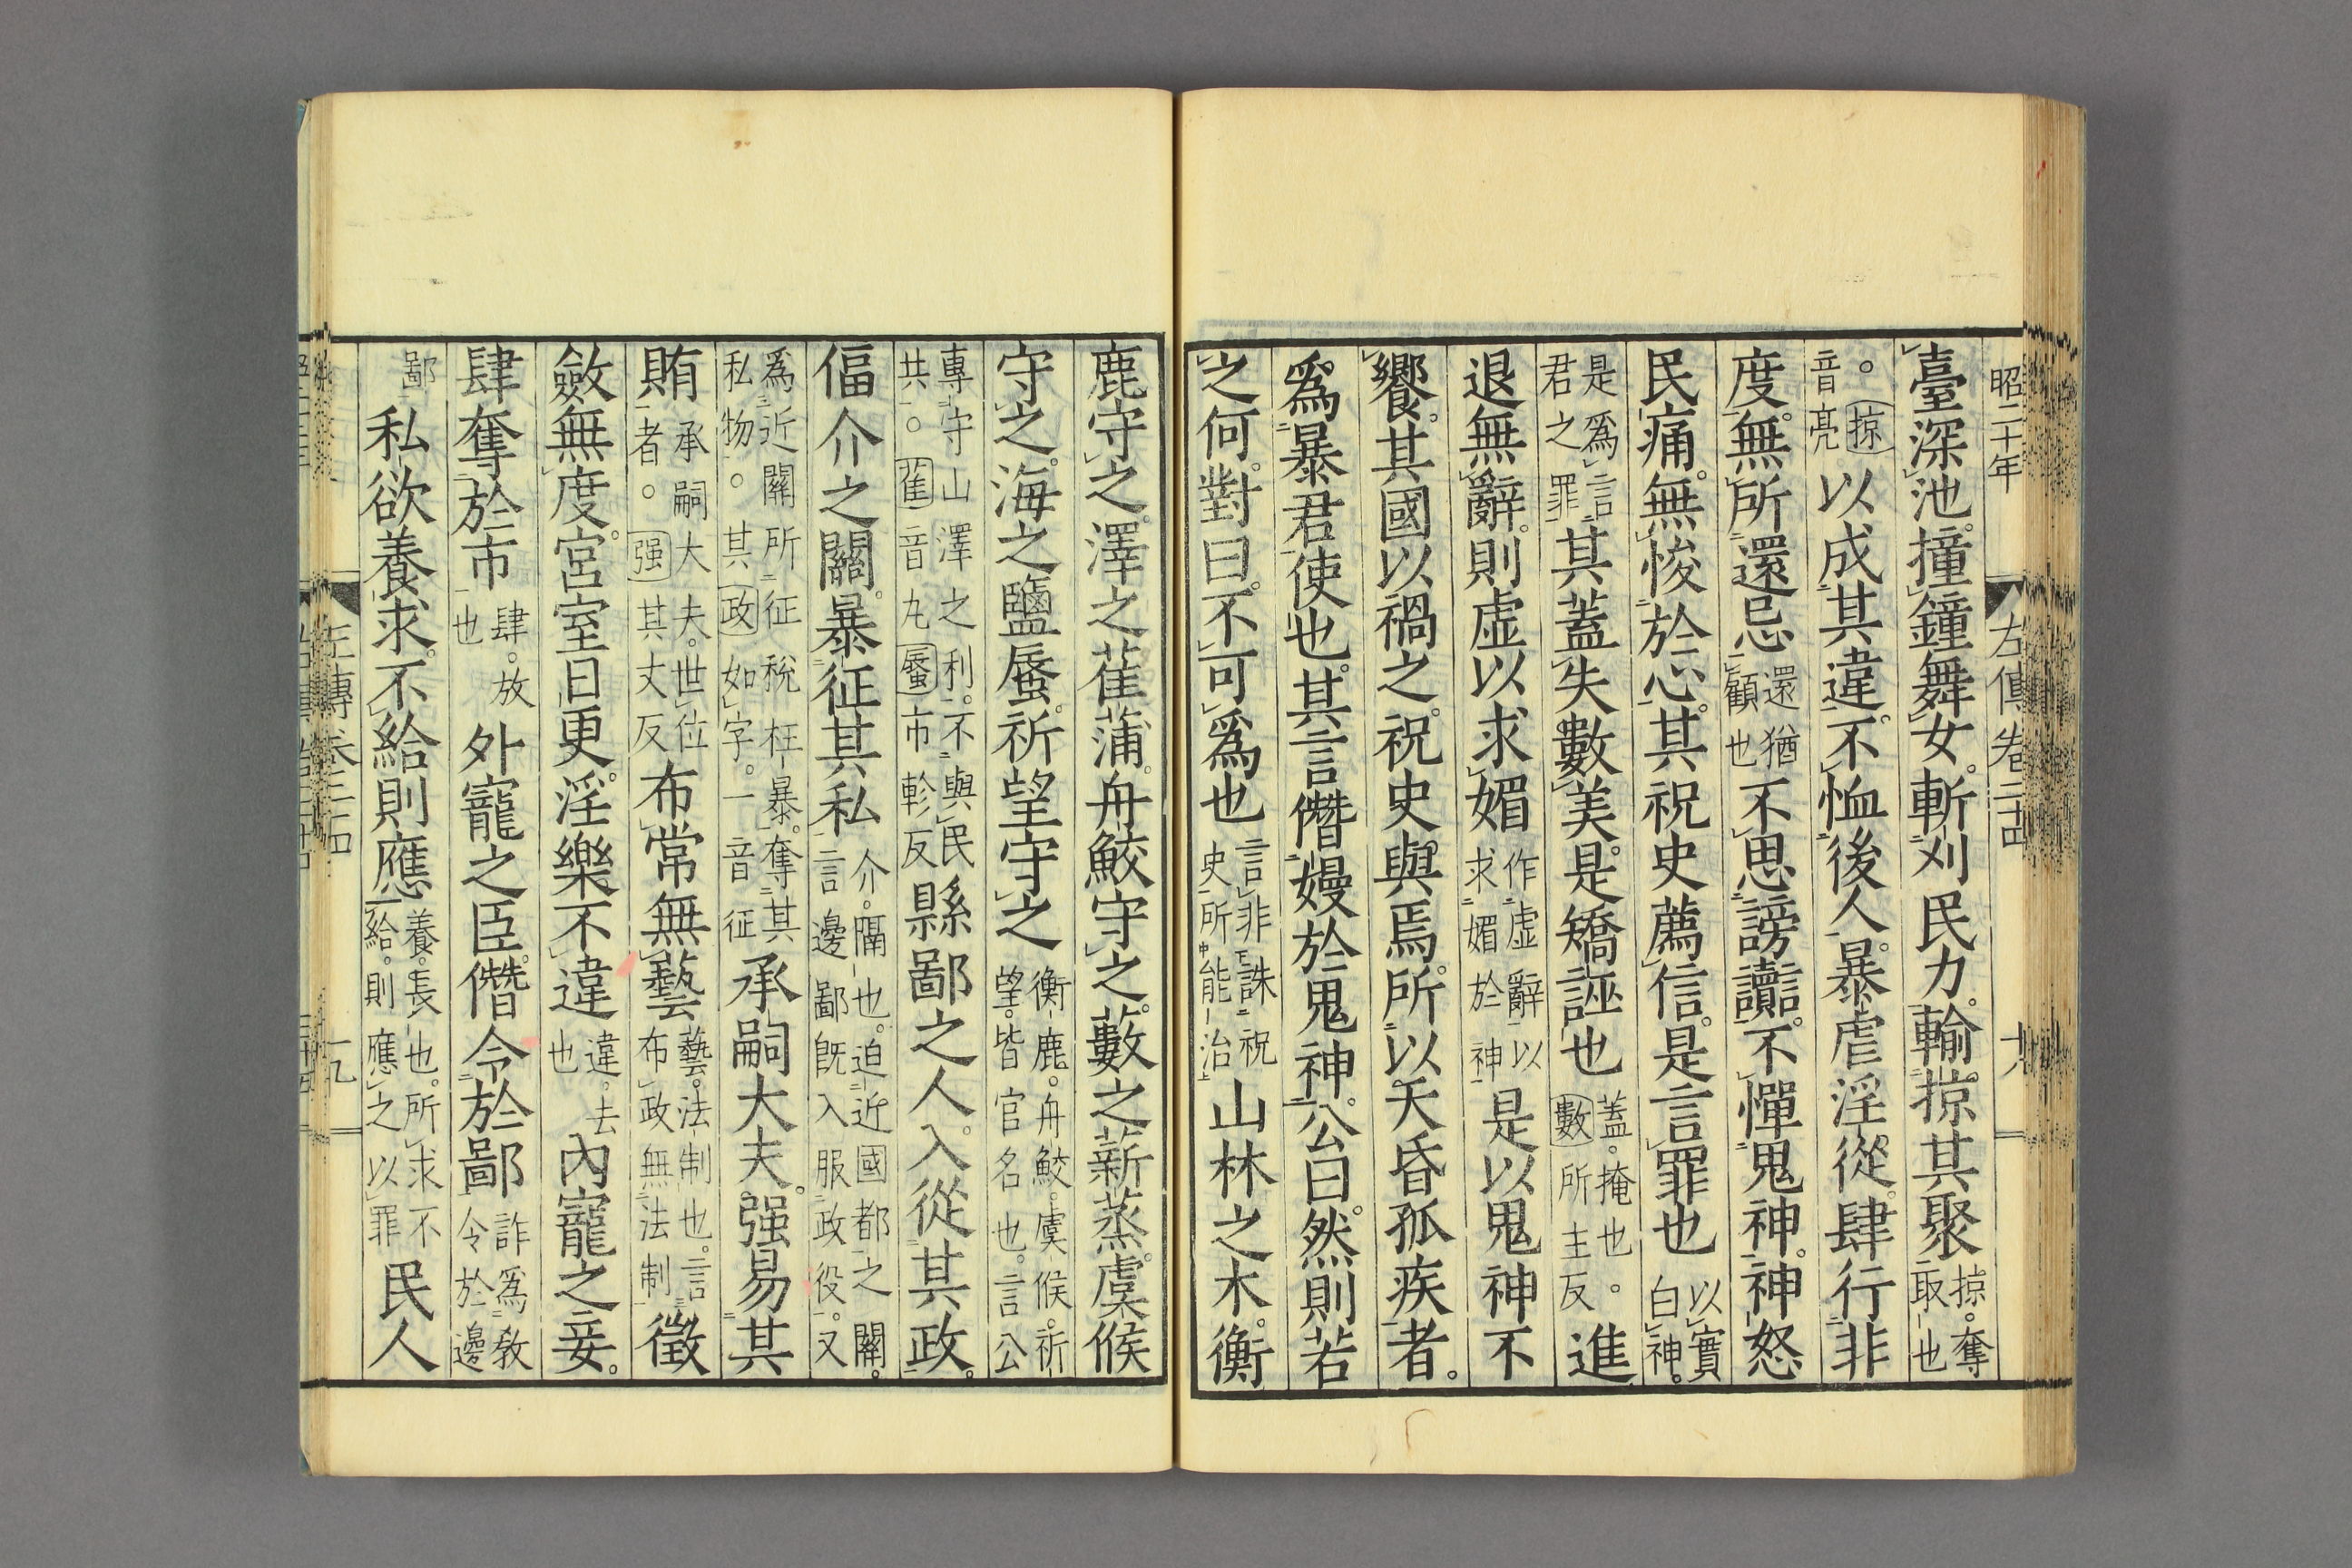 昭二十年
左傳卷二十四
十九
臺深池。撞鐘舞女。斬刈民力。輸掠其聚掠。奪取也
。掠音亮以成其違。不恤後人。暴虐淫從。肆行非
度。無所還忌還猶顧也不思謗讟。不憚鬼神。神怒
民痛。無悛於心。其祝史薦信。是言罪也以實白神。
是爲言君之罪其蓋失數美。是矯誣也蓋。掩也。數所主反進
退無辭。則虛以求媚作虛辭以求媚於神是以鬼神不
饗。其國以禍之。祝史與焉。所以夭昏孤疾者。
爲暴君使也。其言僭嫚於鬼神。公曰。然則若
之何。對曰。不可爲也言非誅祝史所能治山林之木。衡
鹿守之。澤之萑蒲。舟鮫守之。藪之薪蒸。虞候
守之。海之鹽蜃。祈望守之衡鹿。舟鮫。虞候。祈望。皆官名也。言公
專守山澤之利。不與民共。。萑音丸蜃市軫反縣鄙之人。入從其政。
偪介之關。暴征其私介。隔也。迫近國都之關。言邊鄙旣入服政役。又
爲近關所征稅枉暴。奪其私物。。其政如字。一音征承嗣大夫。强易其
賄承嗣大夫。世位者。。强其丈反布常無藝藝。法制也。言布政無法制徵
斂無度。宮室日更。淫樂不違違。去也內寵之妾。
肆奪於市肆。放也外寵之臣。僭令於鄙詐爲教令於邊
鄙私欲養求。不給則應養。長也。所求不給。則應之以罪民人